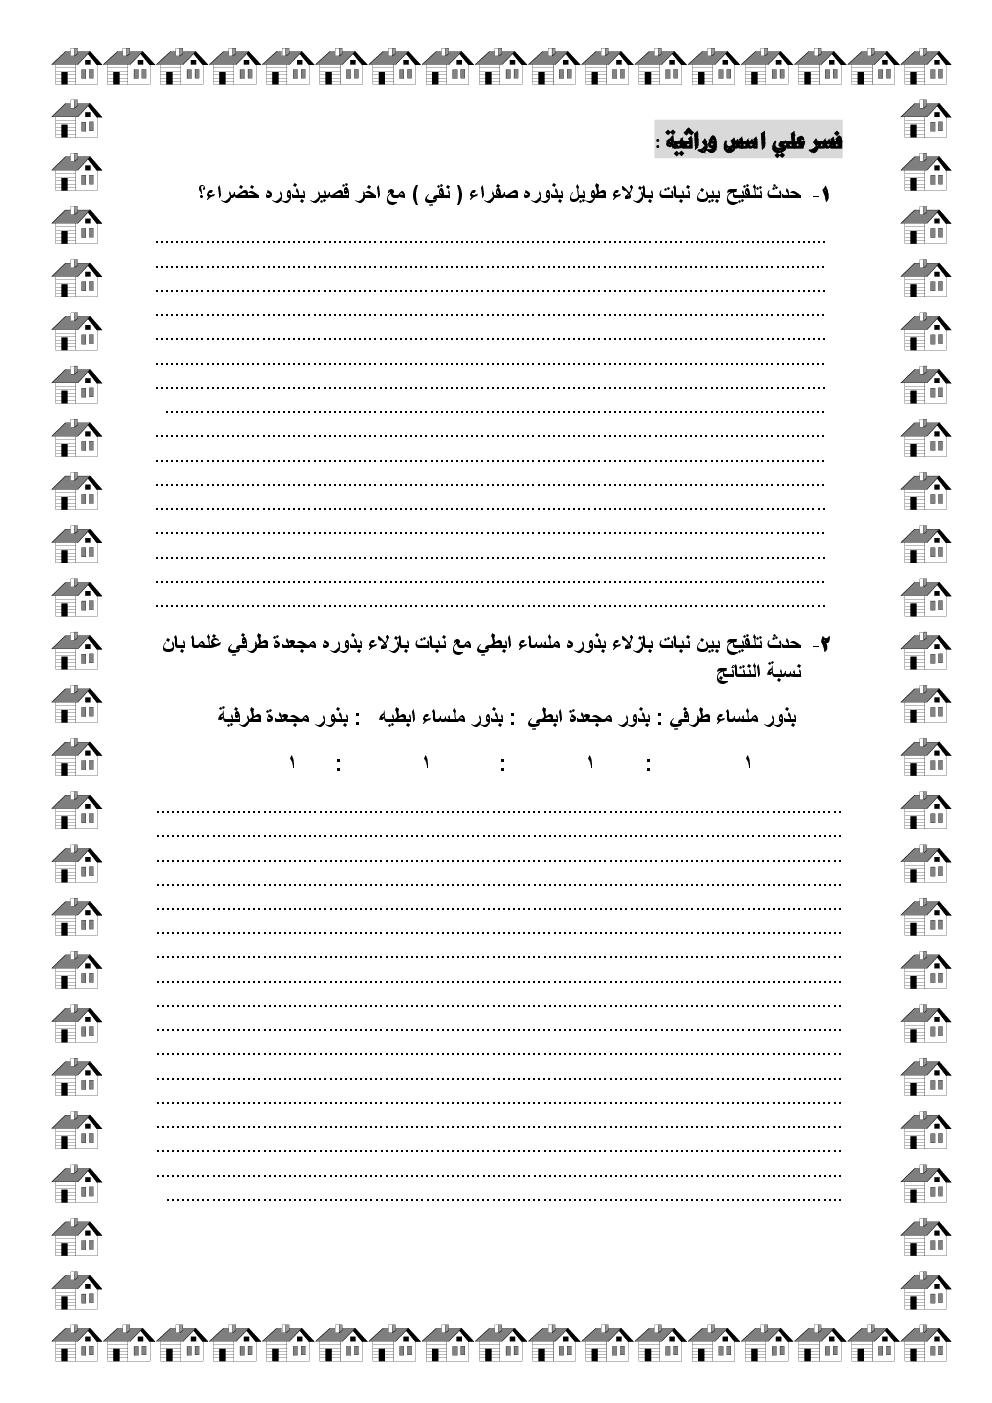 فسر علي اسس وراثية :
١- حدث تلقيح بين نبات بازلاء طويل بذوره صفراء ( نقي ) مع اخر قصير بذوره خضراء؟
٢- حدث تلقيح بين نبات بازلاء بذوره ملساء ابطي مع نبات بازلاء بذوره مجعدة طرفي غلما بان
نسبة النتائج
بذور ملساء طرفي : بذور مجعدة ابطي : بذور ملساء ابطيه : بذور مجعدة طرفية
١ : ١ : ١ : ١